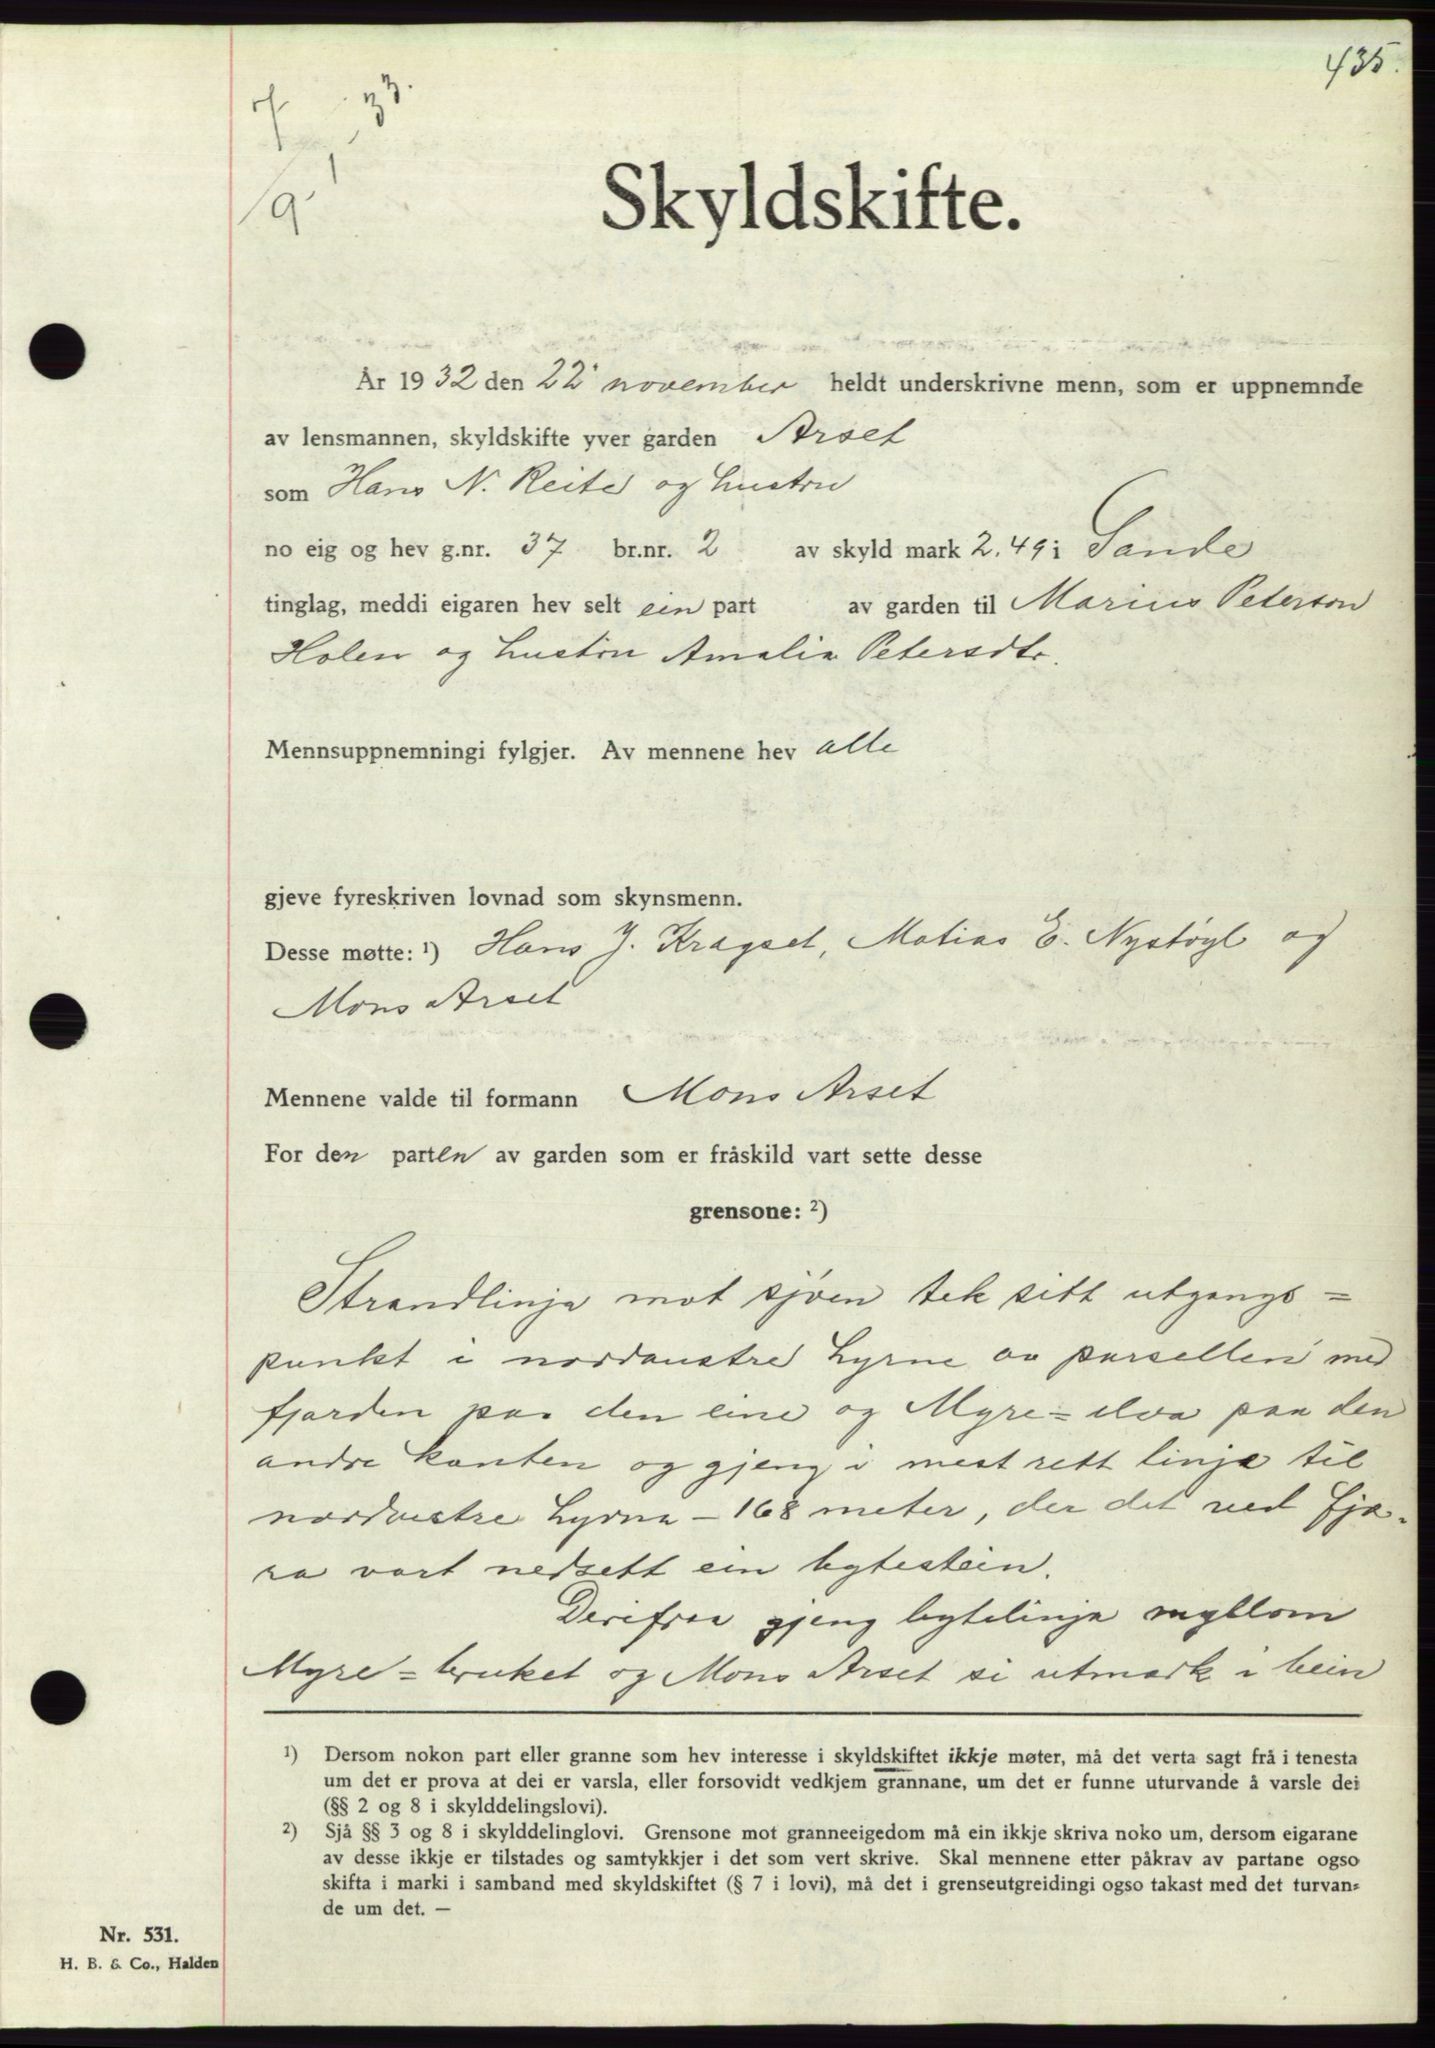 435.
7/
19. 1 33.
Skyldskifte.
År 1932 den 22' november heldt underskrivne menn, som er uppnemnde
av lensmannen, skyldskifte yver garden Arset
som Hans N. Reite og hustru
no eig og hev g.nr. 37 br.nr. 2 av skyld mark 2.49 i Sande
tinglag, meddi eigaren hev selt ein part av garden til Marius Peterson
Holen og hustru Amalia Petersdtr.
Mennsuppnemningi fylgjer. Av mennene hev alle
gjeve fyreskriven lovnad som skynsmenn.
Desse møtte: ¹) Hans J. Kragset, Matias E. Nystøyl og
Mons Arset
Mennene valde til formann Mons Arset
For den parten av garden som er fråskild vart sette desse
grensone: ²)
Strandlinja mot sjøen tek sitt utgangs=
punkt i nordaustre hyrne av parsellen med
fjorden paa den eine og Myre=elva paa den
andre kanten og gjeng i mest rett linje til
nordvestre hyrna - 168 meter, der det ved fjø-
ra vart nedsett ein bytestein.
Derifraa gjeng bytelinja myllom
Myre=bruket og Mons Arset si utmark i bein
¹) Dersom nokon part eller granne som hev interesse i skyldskiftet ikkje møter, må det verta sagt frå i tenesta
um det er prova at dei er varsla, eller forsovidt vedkjem grannane, um det er funne uturvande å varsle dei
(§§ 2 og 8 i skylddelingslovi).
²) Sjå §§ 3 og 8 i skylddelinglovi. Grensone mot granneeigedom må ein ikkje skriva noko um, dersom eigarane
av desse ikkje er tilstades og samtykkjer i det som vert skrive. Skal mennene etter påkrav av partane ogso
skifta i marki i samband med skyldskiftet (§ 7 i lovi), må det i grenseutgreidingi ogso takast med det turvan=
de um det. —
Nr. 531.
H. B. & Co., Halden